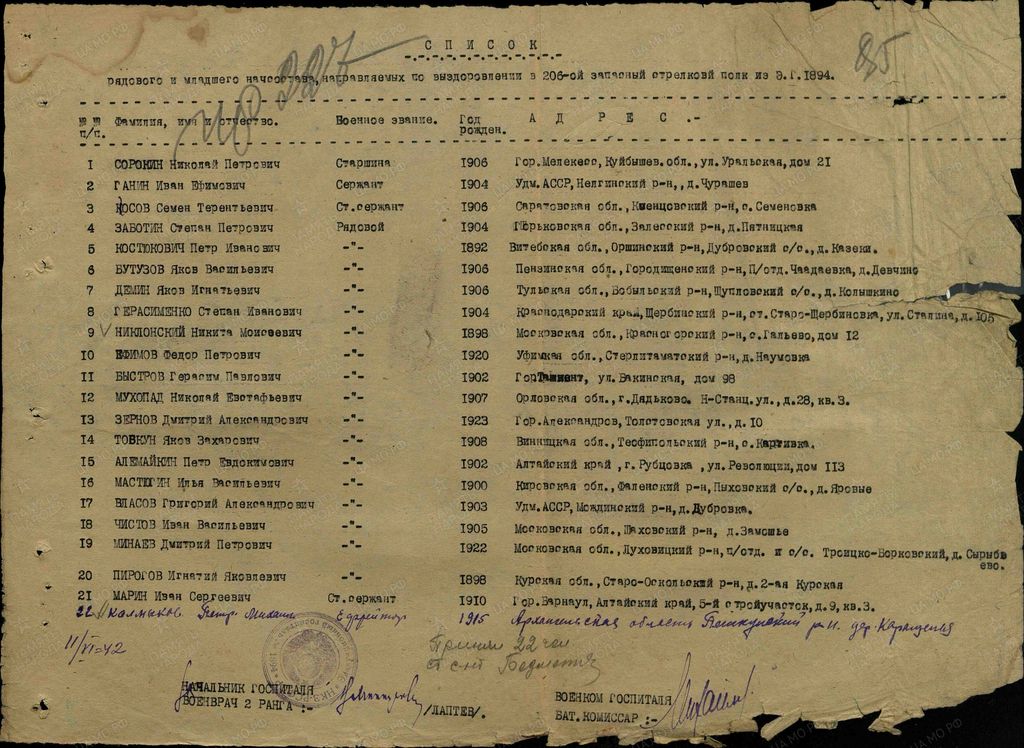 СПИСОК
рядового и младшего начсостава, направляемых по выздоровлении в 206-ой запасный стрелковй полк из Э.Г.1894.
85
№№ п/п. Фамилия, имя и отчество. Военное звание. Год рожден. АДРЕС.-
1 СОРОКИН Николай Петрович Старшина 1906 Гор.Мелекесс,Куйбышев.обл.,ул.Уральская,дом 21
2 ГАНИН Иван Ефимович Сержант 1904 Удм.АССР,Нелгинский р-н,,д.Чурашев
3 КОСОВ Семен Терентьевич Ст.сержант 1906 Саратовская обл.,Кменцовский р-н,с.Семеновка
4 ЗАБОТИН Степан Петрович Рядовой 1904 Горьковская обл.,Залесский р-н,д.Пятницкая
5 КОСТЮКОВИЧ Петр Иванович -"- 1892 Витебская обл.,Оршинский р-н,Дубровский с/с.,д.Казеки.
6 БУТУЗОВ Яков Васильевич -"- 1906 Пензинская обл.,Городищенский р-н,П/отд.Чаадаевка,д.Девчино
7 ДЕМИН Яков Игнатьевич -"- 1906 Тульская обл.,Бобыльский р-н,Щупловский с/с.,д.Колышкино
8 ГЕРАСИМЕНКО Степан Иванович -"- 1904 Краснодарский край,Щербинский р-н,ст.Старо-Щербиновка,ул.Сталина,д.105
9 НИКЛОНСКИЙ Никита Моисеевич -"- 1898 Московская обл.,Красногорский р-н,с.Гальево,дом 12
10 ЕФИМОВ Федор Петрович -"- 1920 Уфимкая обл.,Стерлитаматский р-н,д.Наумовка
11 БЫСТРОВ Герасим Павлович -"- 1902 Гор.Ташкент, ул.Бакинская, дом 98
12 МУХОПАД Николай Евстафьевич -"- 1907 Орловская обл.,г.Дядьково. Н-Станц.ул.,д.28,кв.3.
13 ЗЕРНОВ Дмитрий Александрович -"- 1923 Гор.Александров,Толстовская ул.,д.10
14 ТОВКУН Яков Захарович -"- 1908 Винницкая обл.,Теофипольский р-н,с.Картивка.
15 АЛЕМАЙКИН Петр Евдокимович -"- 1902 Алтайский край ,г.Рубцовка ,ул.Революции,дом 113
16 МАСТЮГИН Илья Васильевич -"- 1900 Кировская обл.,Фаленский р-н,Пыховский с/с.,д.Яровые
17 ВЛАСОВ Григорий Александрович -"- 1903 Удм.АССР,Мождинский р-н,д.Дубровка.
18 ЧИСТОВ Иван Васильевич -"- 1905 Московская обл.,Шаховский р-н, д.Замошье
19 МИНАЕВ Дмитрий Петрович -"- 1922 Московская обл.,Луховицкий р-н,п/отд. и с/с. Троицко-Борковский,д.Сырыбь
ево.
20 ПИРОГОВ Игнатий Яковлевич -"- 1898 Курская обл.,Старо-Оскольский р-н,д.2-ая Курская
21 МАРИН Иван Сергеевич Ст.сержант 1910 Гор.Варнаул,Алтайский край,5-й стройучасток,д.9,кв.3.
22 Калмыков Петр Михаил Ефрейтор 1915 Архангельская область р-н. дер.
11/VI-42
Принял 22 чел
НАЧАЛЬНИК ГОСПИТАЛЯ
ВОЕНВРАЧ 2 РАНГА :- /ЛАПТЕВ/.
ВОЕНКОМ ГОСПИТАЛЯ
БАТ.КОМИССАР :-